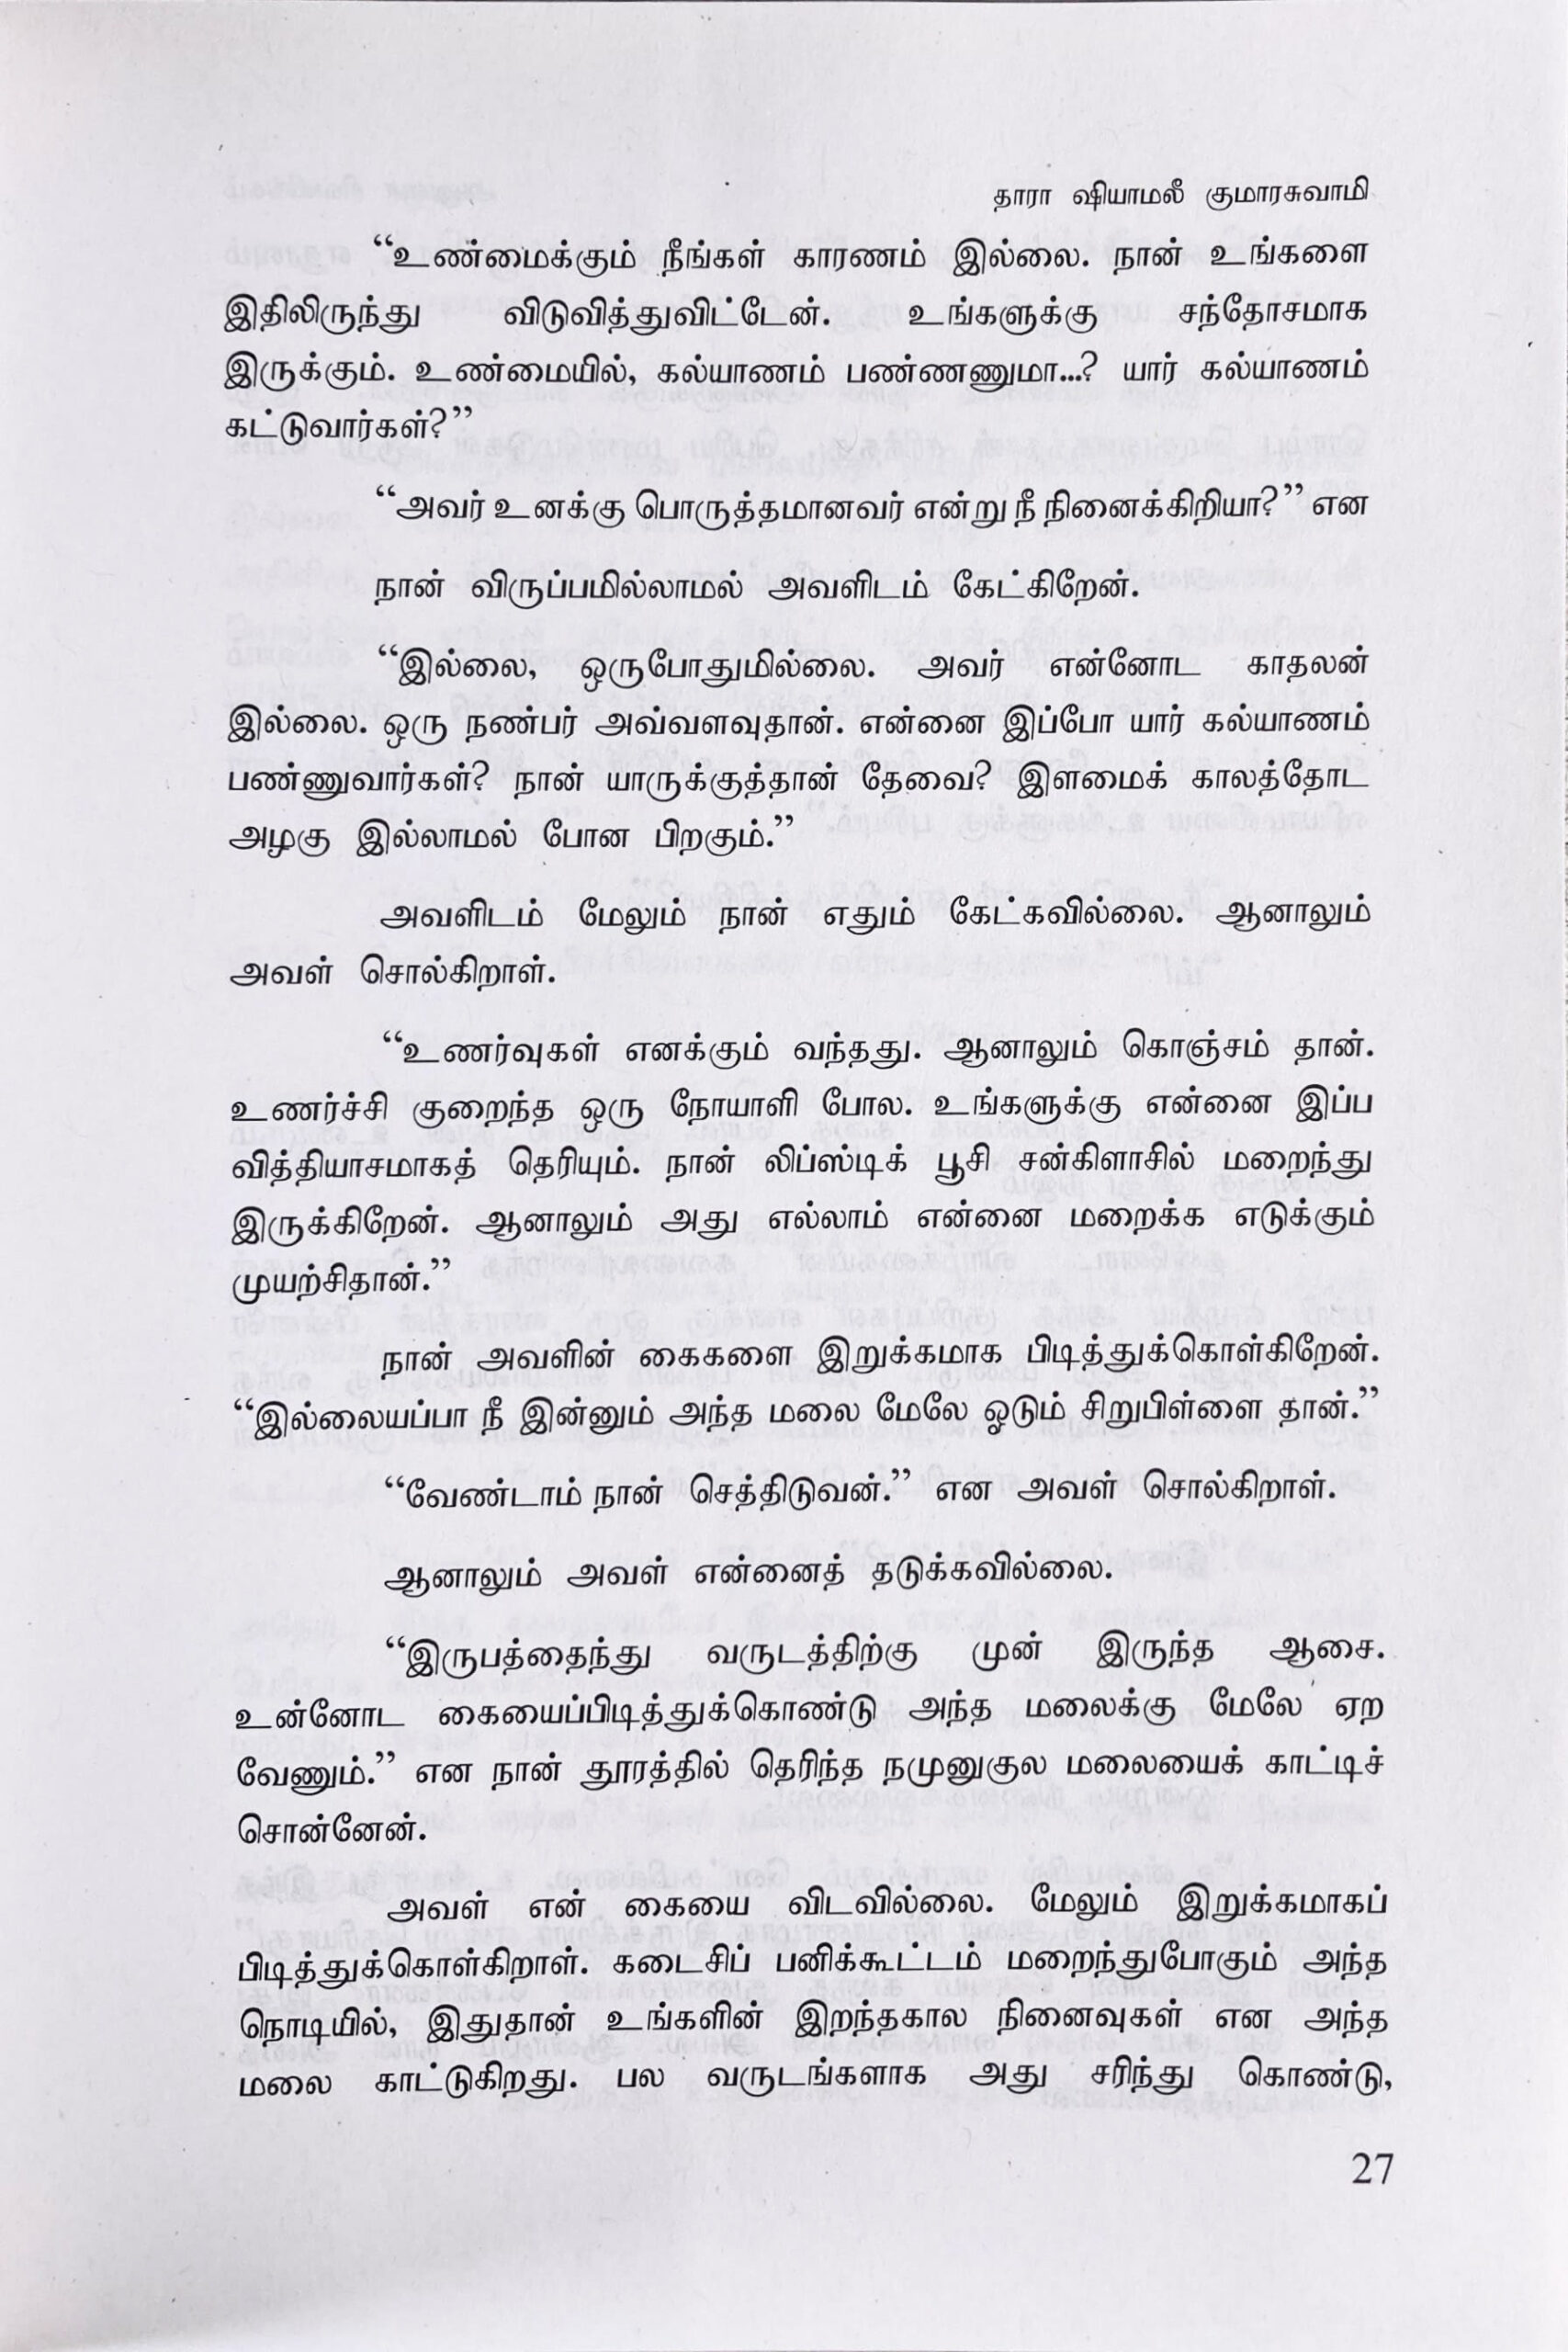 தாரா ஷியாமலீ குமாரசுவாமி
“உண்மைக்கும் நீங்கள் காரணம் இல்லை. நான் உங்களை
இதிலிருந்து விடுவித்துவிட்டேன். உங்களுக்கு சந்தோசமாக
இருக்கும். உண்மையில், கல்யாணம் பண்ணணுமா...? யார் கல்யாணம்
கட்டுவார்கள்?”
“அவர் உனக்கு பொருத்தமானவர் என்று நீ நினைக்கிறியா?” என
நான் விருப்பமில்லாமல் அவளிடம் கேட்கிறேன்.
“இல்லை, ஒருபோதுமில்லை. அவர் என்னோட காதலன்
இல்லை. ஒரு நண்பர் அவ்வளவுதான். என்னை இப்போ யார் கல்யாணம்
பண்ணுவார்கள்? நான் யாருக்குத்தான் தேவை? இளமைக் காலத்தோட
அழகு இல்லாமல் போன பிறகும்.”
அவளிடம் மேலும் நான் எதும் கேட்கவில்லை. ஆனாலும்
அவள் சொல்கிறாள்.
“உணர்வுகள் எனக்கும் வந்தது. ஆனாலும் கொஞ்சம் தான்.
உணர்ச்சி குறைந்த ஒரு நோயாளி போல. உங்களுக்கு என்னை இப்ப
வித்தியாசமாகத் தெரியும். நான் லிப்ஸ்டிக் பூசி சன்கிளாசில் மறைந்து
இருக்கிறேன். ஆனாலும் அது எல்லாம் என்னை மறைக்க எடுக்கும்
முயற்சிதான்.”
நான் அவளின் கைகளை இறுக்கமாக பிடித்துக்கொள்கிறேன்.
“இல்லையப்பா நீ இன்னும் அந்த மலை மேலே ஓடும் சிறுபிள்ளை தான்.”
“வேண்டாம் நான் செத்திடுவன்.” என அவள் சொல்கிறாள்.
ஆனாலும் அவள் என்னைத் தடுக்கவில்லை.
“இருபத்தைந்து வருடத்திற்கு முன் இருந்த ஆசை.
உன்னோட கையைப்பிடித்துக்கொண்டு அந்த மலைக்கு மேலே ஏற
வேணும்.” என நான் தூரத்தில் தெரிந்த நமுனுகுல மலையைக் காட்டிச்
சொன்னேன்.
அவள் என் கையை விடவில்லை. மேலும் இறுக்கமாகப்
பிடித்துக்கொள்கிறாள். கடைசிப் பனிக்கூட்டம் மறைந்துபோகும் அந்த
நொடியில், இதுதான் உங்களின் இறந்தகால நினைவுகள் என அந்த
மலை காட்டுகிறது. பல வருடங்களாக அது சரிந்து கொண்டு,
27